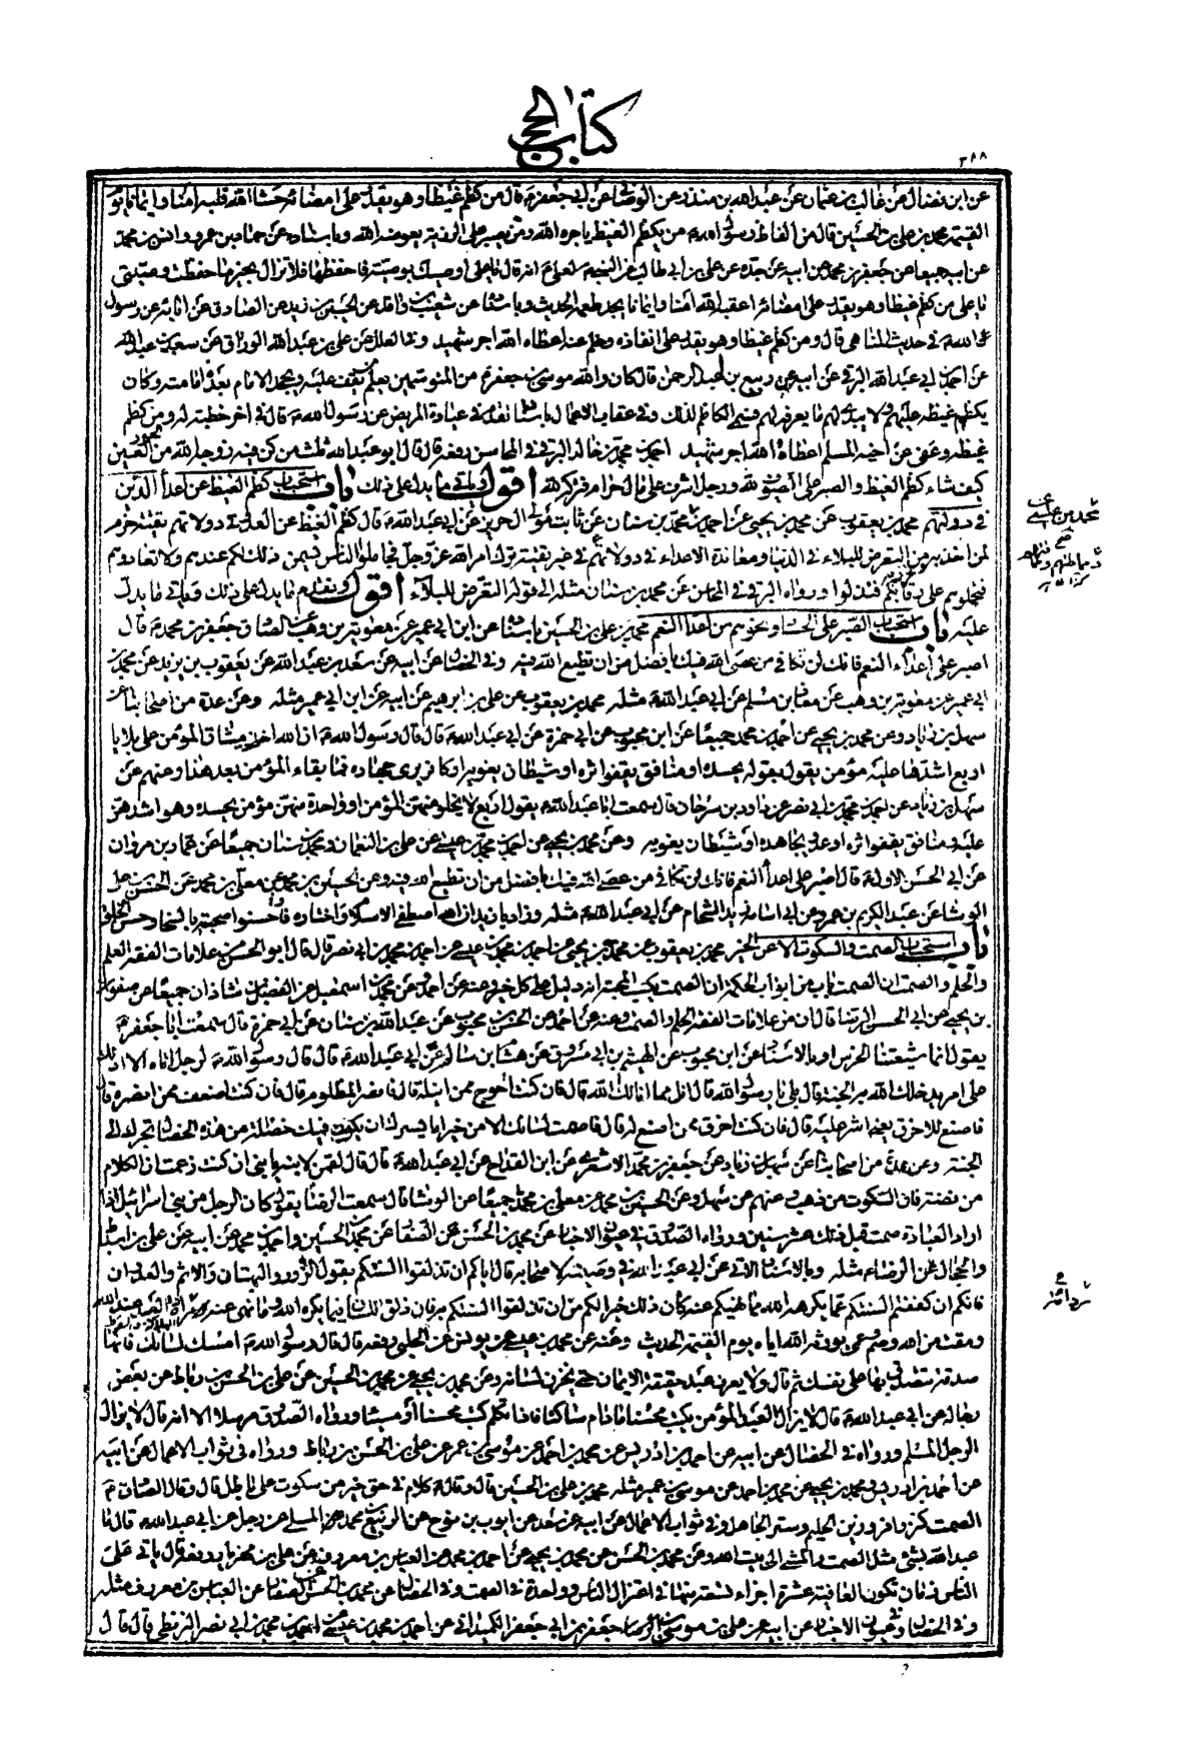 كتاب الحج
٢٨٨
عن ابن فضال عن غالب بن عثمان عن عبد الله بن منذر عن الوصافي عن ابي جعفر ع قال من كظم غيظا وهو يقدر على امضائه حشا الله قلبه امنا وايمانا يوم
القيمة محمد بن علي بن الحسين قال من الفاظ رسول الله ص من يكظم الغيظ ياجره الله ومن يصبر على الرزية يعوضه الله وباسناده عن حماد بن عمرو وانس بن محمد
عن ابيه جميعا عن جعفر بن محمد عن ابيه عن جده عن علي بن ابي طالب عن النبي ص لعلي ع انه قال يا علي اوصيك بوصية فاحفظها فلا تزال بخير ما حفظت وصيتي
يا علي من كظم غيظا وهو يقدر على امضائه اعقبه الله امنا وايمانا يجد طعمه الحديث وباسناده عن شعيب بن واقد عن الحسين بن زيد عن الصادق عن ابائه عن رسول
الله ص في حديث المناهي قال ومن كظم غيظا وهو يقدر على انفاذه وحلم عنه اعطاه الله اجر شهيد وفي العلل عن علي بن عبد الله الوراق عن سعد بن عبد الله
عن احمد بن ابي عبد الله البرقي عن ابيه عن ربيع بن عبد الرحمن قال كان والله موسى بن جعفر ع من المتوسمين يعلم من يقف عليه ويجحد الامام بعد امامته وكان
يكظم غيظه عليهم ولا يبدي لهم ما يعرفه لهم فسمي الكاظم لذلك وفي عقاب الاعمال باسناد تقدم في عيادة المريض عن رسول الله ص قال في اخر خطبة له ومن كظم
غيظه وعفى عن اخيه المسلم اعطاه الله اجر شهيد احمد بن محمد بن خالد البرقي في المحاسن رفعه قال قال ابو عبد الله ع ثلث من كن فيه زوجه الله من الحور العين
كيف شاء كظم الغيظ والصبر على السيوف لله ورجل اشرف على مال حرام فتركه لله اقول وياتي ما يدل على ذلك باب استحباب كظم الغيظ عن اعداء الدين
في دولتهم محمد بن يعقوب عن محمد بن يحيى عن احمد بن محمد بن سنان عن ثابت مولى ال حريز عن ابي عبد الله ع قال كظم الغيظ عن العدو في دولاتهم تقية حزم
لمن اخذ به من التعرض للبلاء في الدنيا ومعاندة الاعداء في دولاتهم في غير تقية ترك امر الله عز وجل فجاملوا الناس يسمن ذلك لكم عندهم ولا تعادوهم
فتحملوهم على رقابكم فتذلوا ورواه البرقي في المحاسن عن محمد بن سنان مثله الى قوله التعرض للبلاء اقول وتقدم ما يدل على ذلك وياتي ما يدل
عليه باب استحباب الصبر على الحساد ونحوهم من اعداء النعم محمد بن علي بن الحسين باسناده عن ابن ابي عمير عن معاوية بن وهب عن الصادق جعفر بن محمد ع قال
اصبر على اعداء النعم فانك لن تكافي من عصى الله فيك بافضل من ان تطيع الله فيه وفي الخصال عن ابيه عن سعد بن عبد الله عن يعقوب بن يزيد عن محمد بن
ابي عمير عن معوية بن وهب عن معاذ بن مسلم عن ابي عبد الله ع مثله محمد بن يعقوب عن علي بن ابرهيم عن ابيه عن ابن ابي عمير مثله وعن عدة من اصحابنا عن
سهل بن زياد وعن محمد بن يحيى عن احمد بن محمد جميعا عن ابن محبوب عن ابي حمزة عن ابي عبد الله ع قال قال رسول الله ص ان الله اخذ ميثاق المؤمن على بلايا
اربع اشدها عليه مؤمن يقول بقوله يحسده او منافق يقفو اثره او شيطان يغويه او كافر يرى جهاده فما بقاء المؤمن بعد هذا وعنهم عن
سهل بن زياد عن احمد بن محمد بن ابي نصر عن داود بن سرحان قال سمعت ابا عبد الله ع يقول اربع لا يخلو منهن المؤمن او واحدة منهن مؤمن يحسده وهو اشدهن
عليه ومنافق يقفو اثره او عدو يجاهده او شيطان يغويه وعن محمد بن يحيى عن احمد بن محمد بن عيسى عن علي بن النعمان ومحمد بن سنان جميعا عن عمار بن مروان
عن ابي الحسن الاول ع قال اصبر على اعداء النعم فانك لن تكافي من عصى الله فيك بافضل من ان تطيع الله فيه وعن الحسين بن محمد عن معلى بن محمد عن الحسن بن علي
الوشا عن عبد الكريم بن عمرو عن ابي اسامة زيد الشحام عن ابي عبد الله ع مثله وزاد يا زيد ان الله اصطفى الاسلام واختاره فاحسنوا صحبته بالسخاء وحسن الخلق
باب استحباب الصمت والسكوت الا عن الخير محمد بن يعقوب عن محمد بن يحيى عن احمد بن محمد بن عيسى عن احمد بن محمد بن ابي نصر قال قال ابو الحسن ع من علامات الفقه العلم
والحلم والصمت ان الصمت باب من ابواب الحكمة ان الصمت يكسب المحبة انه دليل على كل خير وعنه عن احمد عن محمد بن اسمعيل عن الفضل بن شاذان جميعا عن صفوان
بن يحيى عن ابي الحسن الرضا قال ان من علامات الفقه الحلم والصمت وعنه عن احمد عن الحسن بن محبوب عن عبد الله بن سنان عن ابي حمزة قال سمعت ابا جعفر ع
يقول انما شيعتنا الخرس وبالاسناد عن ابن محبوب عن الهيثم بن ابي مسروق عن هشام بن سالم عن ابي عبد الله ع قال قال رسول الله ص لرجل اتاه الا ادلك
على امر يدخلك الله به الجنة قال بلى يا رسول الله قال انل مما انالك الله قال فان كنت احوج ممن انيله قال فانصر المظلوم قال فان كنت اضعف ممن انصره قال
فاصنع للاخرق يعني اشر عليه قال فان كنت اخرق ممن اصنع له قال فاصمت لسانك الا من خير اما يسرك ان يكون فيك خصلة من هذه الخصال تجرك الى
الجنة وعن عدة من اصحابنا عن سهل بن زياد عن جعفر بن محمد الاشعري عن ابن القداح عن ابي عبد الله ع قال قال لقمن لابنه يا بني ان كنت زعمت ان الكلام
من فضة فان السكوت من ذهب وعنهم عن سهل وعن الحسين بن محمد عن معلى بن محمد جميعا عن الوشا قال سمعت الرضا يقول كان الرجل من بني اسرائيل اذا
اراد العبادة صمت قبل ذلك عشر سنين ورواه الصدوق في عيون الاخبار عن محمد بن الحسن عن الصفار عن محمد بن الحسين واحمد بن محمد عن ابيه عن علي بن اسباط
والحجال عن الرضا ع مثله وبالاسناد الاتي عن ابي عبد الله في وصيته لاصحابه قال اياكم ان تذلقوا السنتكم بقول الزور والبهتان والاثم والعدوان
فانكم ان كففتم السنتكم عما يكره الله مما نهيكم عنه كان ذلك خيرا لكم من ان تذلقوا السنتكم به فان ذلق اللسان فيما يكره الله وما نهى عنه مرداة للعبد عند الله
ومقت من الله وصم عمي يورثه الله اياه يوم القيمة الحديث وعنه عن محمد بن عيسى عن يونس عن الحلبي رفعه قال قال رسول الله ص امسك لسانك فانها
صدقة تصدق بها على نفسك ثم قال ولا يعرف عبد حقيقة الايمان حتى يخزن لسانه وعن محمد بن يحيى عن محمد بن الحسين عن علي بن الحسن بن رباط عن بعض
رجاله عن ابي عبد الله ع قال لا يزال العبد المؤمن يكتب محسنا ما دام ساكتا فاذا تكلم كتب محسنا او مسيئا ورواه الصدوق مرسلا الا انه قال لا يزال
الرجل المسلم ورواه في الخصال عن ابيه عن احمد بن ادريس عن محمد بن احمد عن موسى بن عمر عن علي بن الحسن بن رباط ورواه في ثواب الاعمال عن ابيه
عن احمد بن ادريس ومحمد بن يحيى عن محمد بن احمد عن موسى بن عمر مثله محمد بن علي بن الحسين قال وقال ع كلام في حق خير من سكوت على باطل قال وقال الصادق ع
الصمت كنز وافر وزين الحليم وستر الجاهل وفي ثواب الاعمال عن ابيه عن سعد عن ايوب بن نوح عن الربيع بن محمد المسلي عن رجل عن ابي عبد الله ع قال ما
عبد الله بشئ مثل الصمت والمشي الى بيت الله وعن محمد بن الحسن عن محمد بن يحيى عن احمد بن محمد عن العباس بن معروف عن علي بن مهزيار رفعه قال ياتي على
الناس زمان تكون العافية عشرة اجزاء تسعة منها في اعتزال الناس وواحدة في الصمت وفي الخصال عن محمد بن الحسن عن الصفار عن العباس بن معروف مثله
وفي الخصال وعيون الاخبار عن ابيه عن علي بن موسى بن جعفر بن ابي جعفر الكميداني عن احمد بن محمد بن عيسى عن احمد بن محمد بن ابي نصر البزنطي قال قال
محمد بن عيسى